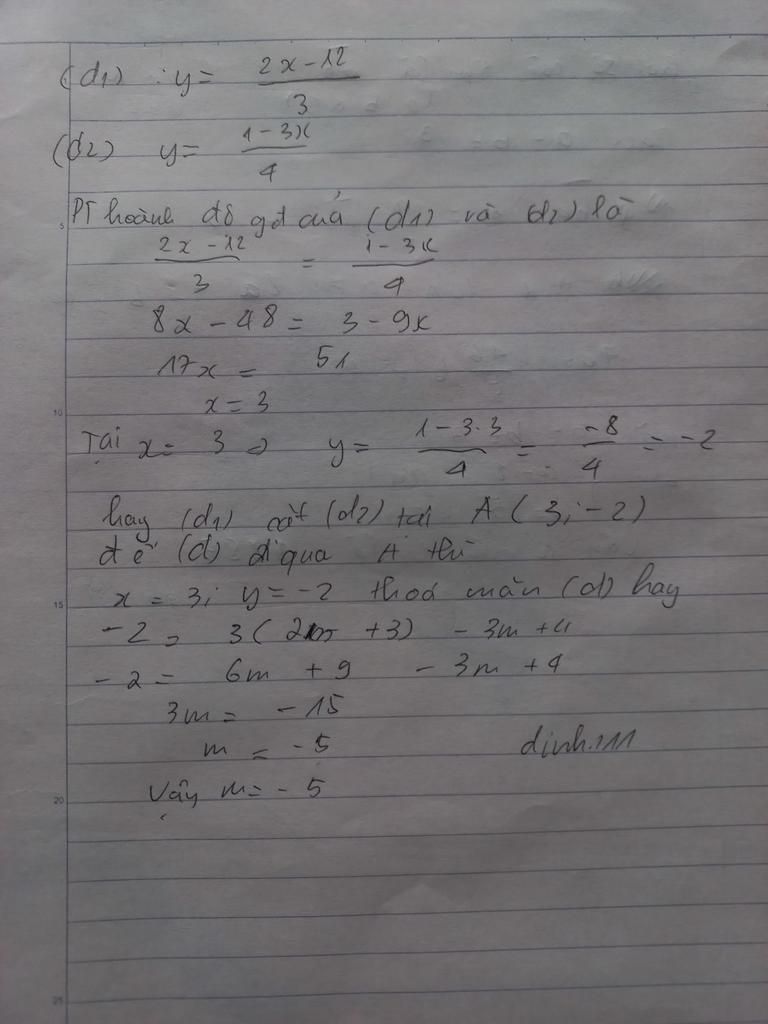 (d1) : y = (2x - 12)/3
(d2) y = (1 - 3x)/4
PT hoành độ gđ của (d1) và (d2) là
(2x - 12)/3 = (1 - 3x)/4
8x - 48 = 3 - 9x
17x = 51
x = 3
Tại x = 3 => y = (1 - 3.3)/4 = -8/4 = -2
hay (d1) cắt (d2) tại A (3; -2)
để (d) đi qua A thì
x = 3; y = -2 thoả mãn (d) hay
-2 = 3(2m + 3) - 3m + 4
-2 = 6m + 9 - 3m + 4
3m = -15
m = -5
dinh.111
Vậy m = -5
5
10
15
20
25